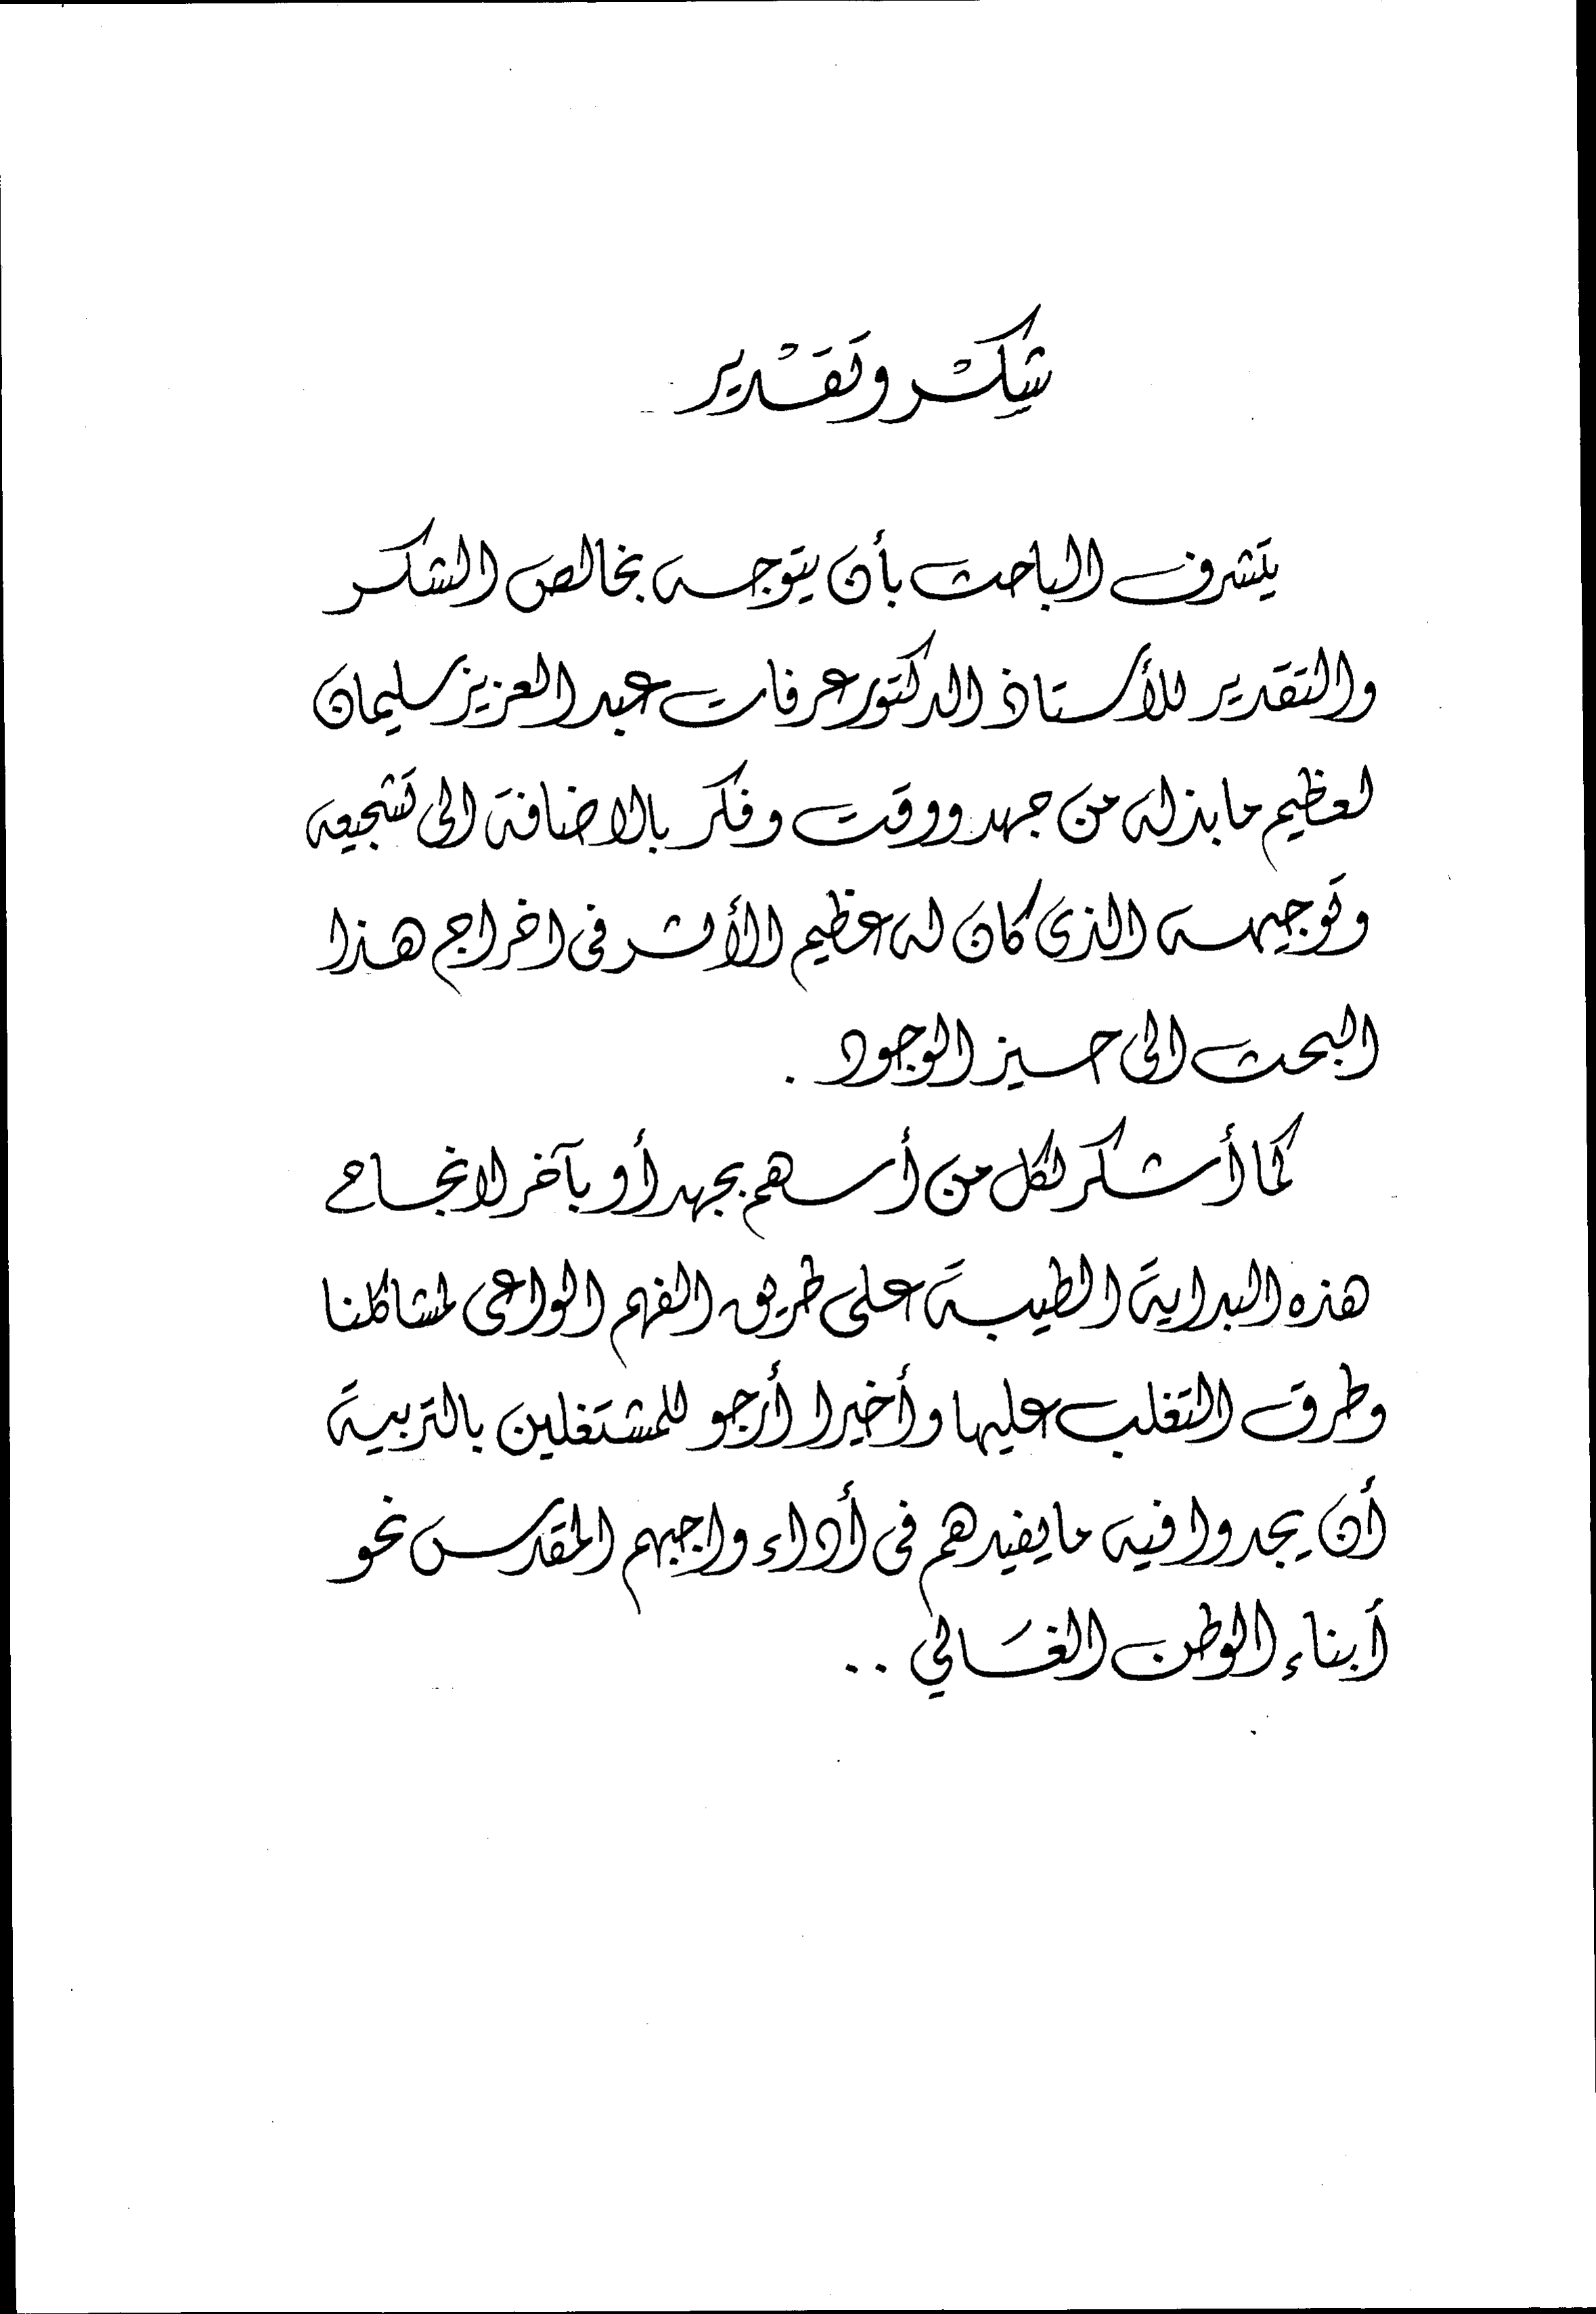 شكر وتقدير
يتشرف الباحث بأن يتوجه بخالص الشكر
والتقدير للأستاذ الدكتور عرفات عبد العزيز سليمان
لعظيم ما بذله من جهد ووقت وفكر بالاضافة الى تشجيعه
وتوجيهه الذى كان له عظيم الأثر فى اخراج هذا
البحث الى حيز الوجود .
كما أشكر لكل من أسهم بجهد أو بآخر لانجاح
هذه البداية الطيبة على طريق الفهم الواعى لمشاكلنا
وطرق التغلب عليها وأخيرا أرجو للمشتغلين بالتربية
أن يجدوا فيه ما يفيدهم فى أداء واجبهم المقدس نحو
أبناء الوطن الغالي ..